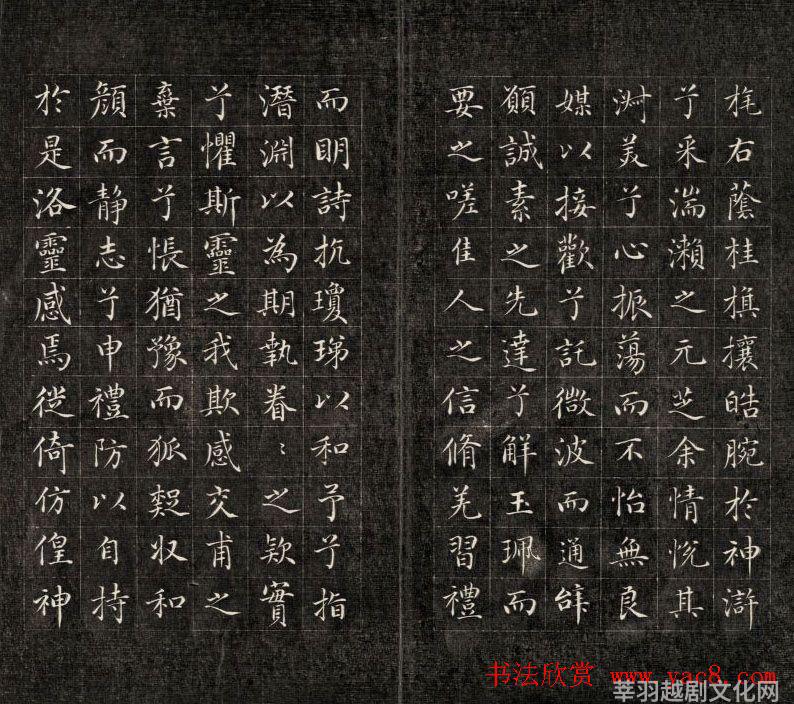 旄右蔭桂旗攘皓腕於神滸
兮采湍瀨之元芝余情悅其
淑美兮心振蕩而不怡無良
媒以接歡兮託微波而通辭
願誠素之先達兮解玉珮而
要之嗟佳人之信脩羌習禮
而明詩抗瓊珶以和予兮指
潛淵以為期執眷〻之欵實
兮懼斯靈之我欺感交甫之
棄言兮悵猶豫而狐疑収和
顏而静志兮申禮防以自持
於是洛靈感焉徙倚仿偟神
书法欣赏 www.yac8.com
莘羽越剧文化网